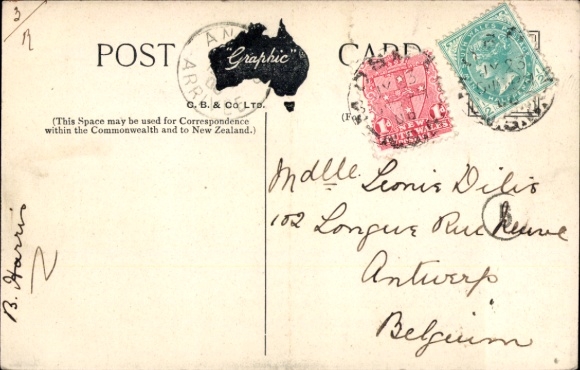 3
POST CARD
"Graphic"
C. B. & Co LTD.
(This Space may be used for Correspondence
within the Commonwealth and to New Zealand.)
(Fo
AN
ARR
WALES
Mdlle Leonie Dilis
102 Longue Rue Neuve
Antwerp
Belgium
B. Harris